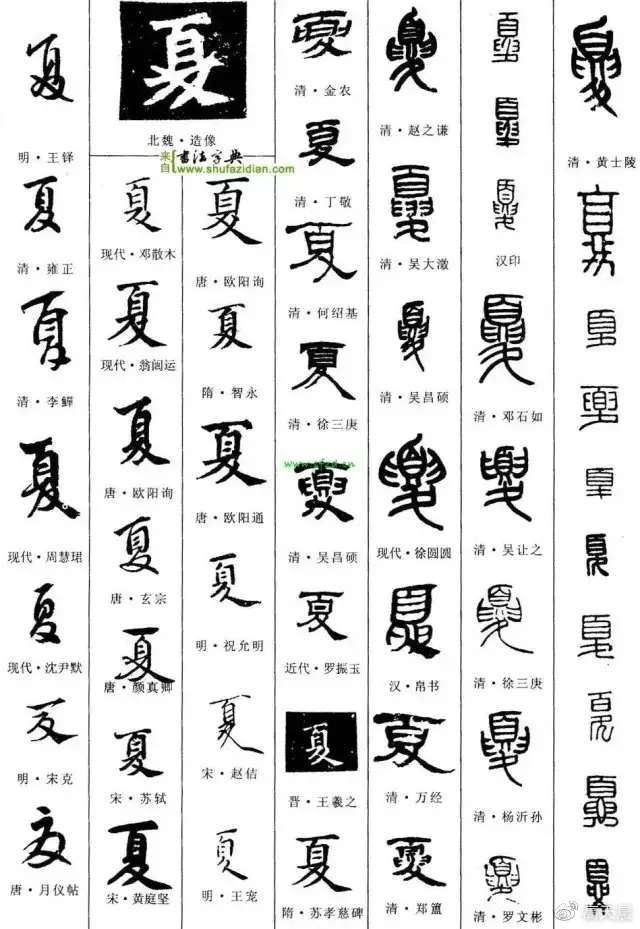 夏
明·王铎
夏
清·雍正
夏
清·李鱓
夏
现代·周慧珺
夏
现代·沈尹默
夏
明·宋克
夏
唐·月仪帖
夏
北魏·造像
来自 书法字典
www.shufazidian.com
夏
现代·邓散木
夏
现代·翁闿运
夏
唐·欧阳询
夏
唐·玄宗
夏
唐·颜真卿
夏
宋·苏轼
夏
宋·黄庭坚
夏
唐·欧阳询
夏
隋·智永
夏
唐·欧阳通
夏
明·祝允明
夏
宋·赵佶
夏
明·王宠
夏
清·金农
夏
清·丁敬
夏
清·何绍基
夏
清·徐三庚
夏
清·吴昌硕
夏
近代·罗振玉
夏
晋·王羲之
夏
隋·苏孝慈碑
夏
清·赵之谦
夏
清·吴大澂
夏
清·吴昌硕
夏
现代·徐圆圆
夏
汉·帛书
夏
清·万经
夏
清·郑簠
夏
夏
夏
汉印
夏
清·邓石如
夏
清·吴让之
夏
清·徐三庚
夏
清·杨沂孙
夏
清·罗文彬
夏
清·黄士陵
夏
夏
夏
夏
夏
夏
夏
夏
夏